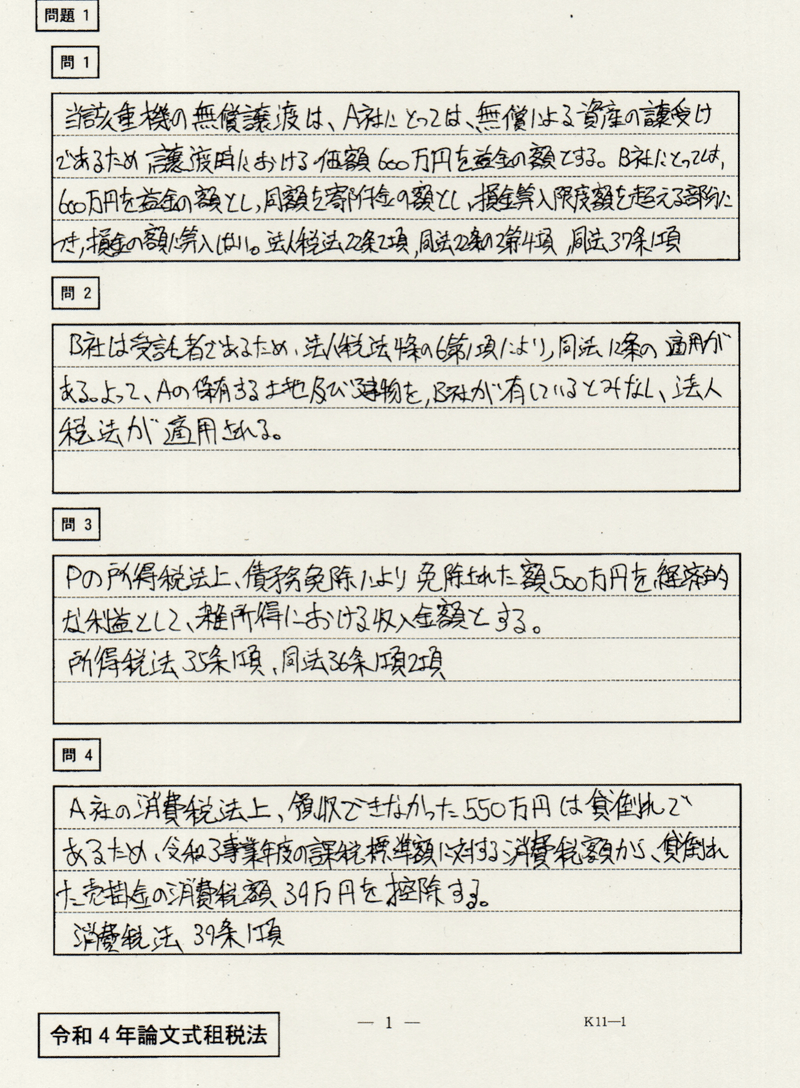 問題 1
問 1
当該重機の無償譲渡は、A社にとっては、無償による資産の譲受け
であるため 譲渡時における価額600万円を益金の額とする。B社にとっては、
600万円を益金の額とし、同額を寄附金の額とし、損金算入限度額を超える部分に
つき、損金の額に算入しない。法人税法22条2項,同法22条の2第4項,同法37条1項
問 2
B社は受託者であるため、法人税法4条の6第1項により,同法12条の適用が
ある。よって、Aの保有する土地及び建物を,B社が有しているとみなし、法人
税法が適用される。
問 3
Pの所得税法上、債務免除により免除された額500万円を経済的
な利益として、雑所得における収入金額とする。
所得税法35条1項、同法36条1項2項
問 4
A社の消費税法上、領収できなかった550万円は貸倒れで
あるため、令和3事業年度の課税標準額に対する消費税額から、貸倒れ
た売掛金の消費税額 39万円を控除する。
消費税法 39条1項
令和4年論文式租税法
— 1 —
K11—1